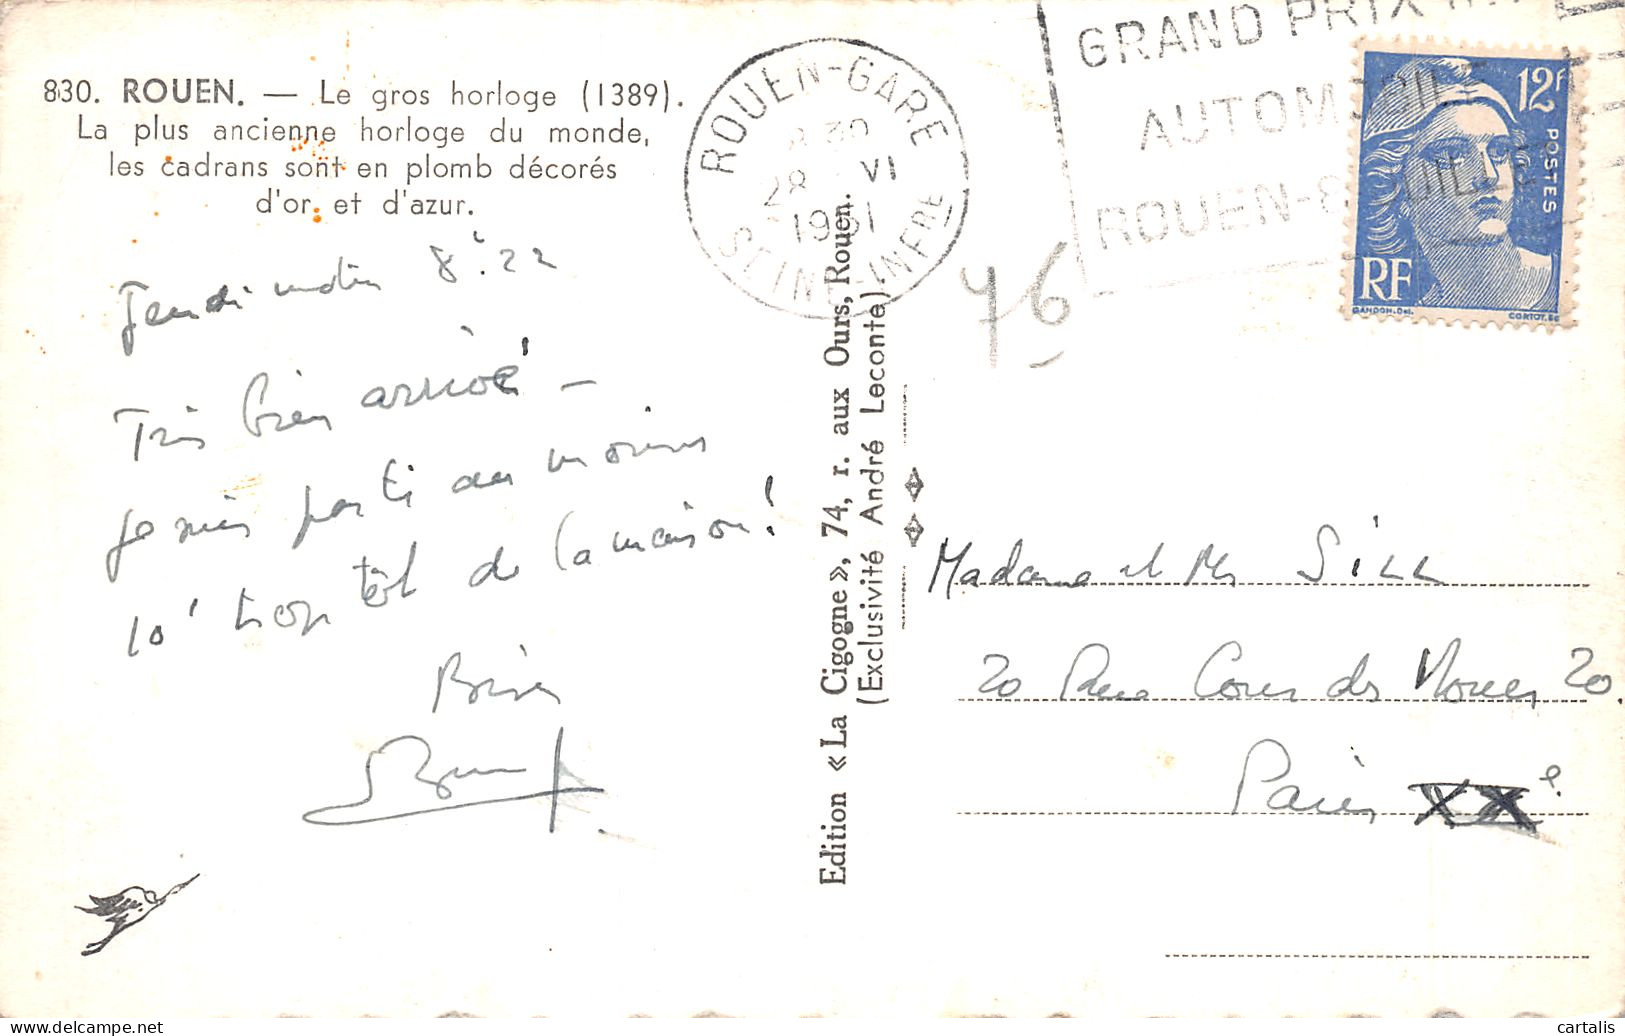 830. ROUEN. — Le gros horloge (1389).
La plus ancienne horloge du monde,
les cadrans sont en plomb décorés
d'or et d'azur.
Jeudi matin 8h 22
Très bien arrivé —
Je suis parti au moins
10' trop tôt de la maison !
Bises
Edition « La Cigogne », 74, r. aux Ours, Rouen.
(Exclusivité André Leconte).
ROUEN-GARE
30
28 VI
1951
SEINE-INFRE
GRAND PRIX
AUTOMOBILE
ROUEN-
76
12f
POSTES
RF
GANDON.Del.
CORTOT.SC
Madame et Mr Sill
20 Rue Cour des Noues 20.
Paris XXe
cartalis